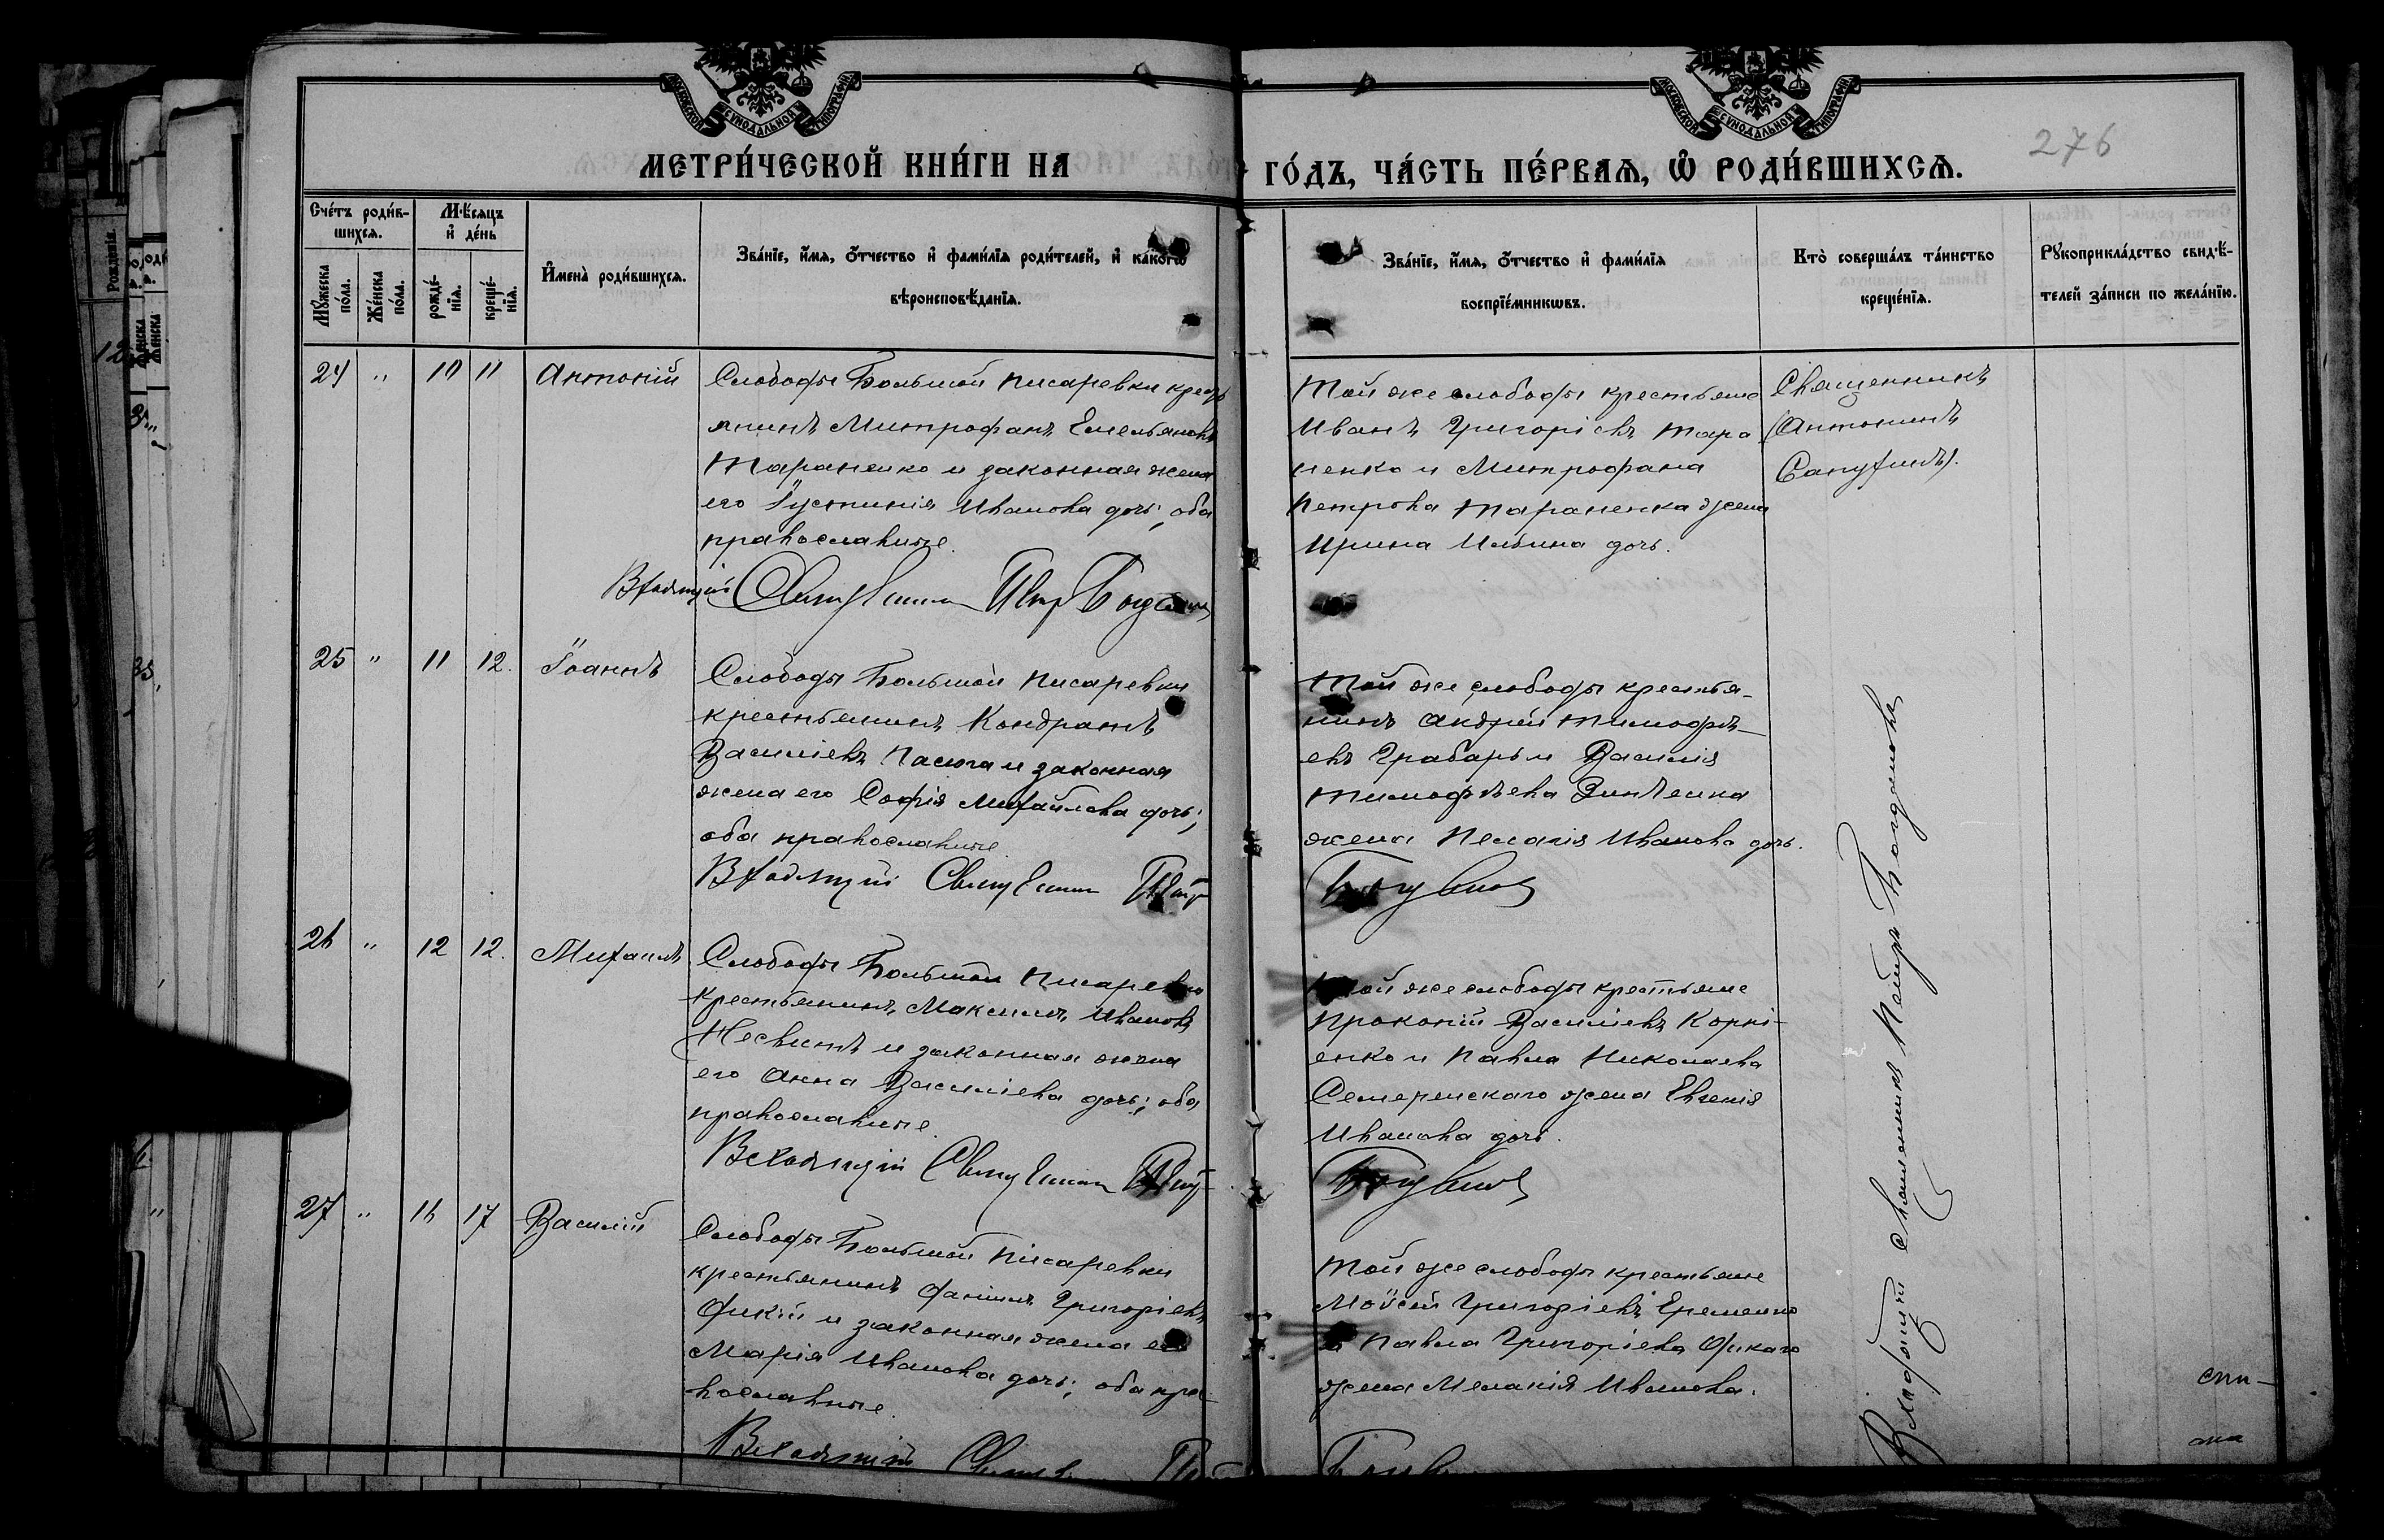 МОСКОВСКОЙ СѴНОДАЛЬНОЙ ТИПОГРАФІИ
МОСКОВСКОЙ СѴНОДАЛЬНОЙ ТИПОГРАФІИ
276
МЕТРИ́ЧЕСКОЙ КНИ́ГИ НА
ГО́ДЪ, ЧА́СТЬ ПЕ́РВАѦ, Ѽ РОДИ́ВШИХСѦ.
Сче́тъ роди́в-
шихсѧ.
Мѣ́сѧцъ
и҆ де́нь
Мꙋ́жеска по́ла.
Же́нска по́ла.
рожде́-
нїѧ.
креще́-
нїѧ.
И҆мена̀ роди́вшихсѧ.
Зва́нїе, и҆́мѧ, ѻ҆́тчество и҆ фами́лїѧ роди́телей, и҆ како́гѡ
вѣроисповѣ́данїѧ.
Зва́нїе, и҆́мѧ, ѻ҆́тчество и҆ фами́лїѧ
воспрїе́мникѡвъ.
Кто̀ соверша́лъ та́инство
креще́нїѧ.
Рꙋкоприкла́дство свидѣ́-
телей за́писи по жела́нїю.
24 " 10 11 Антоній
Слободы Большой Писаревки крест
янинъ Митрофанъ Емельяновъ
Тараненко и законная жена
его Іустинія Иванова дочь; оба
православные.
Той же слободы крестьяне
Иванъ Григоріевъ Тара
ненко и Митрофана
Петрова Тараненка жена
Ирина Ильина дочь.
Священникъ
Антонинъ
25 " 11 12. Іоаннъ
Слободы Большой Писаревки
крестьянинъ Кондратъ
Василіевъ Пасюга и законная
жена его Софія Михайлова дочь;
оба православные
Той же слободы крестья-
нинъ Андрей Тимофѣ-
евъ Грабарь и Василія
Тимофѣева Зинѣенка
жена Пелагія Иванова дочь.
26 " 12 12. Михаилъ
Слободы Большой Писаревки
крестьянинъ Максимъ Ивановъ
Несвитъ и законная жена
его Анна Василіева дочь; оба
православные.
Входящій
Той же слободы крестьяне
Прокопій Василіевъ Корні-
енко и Павла Николаева
Семеренскаго жена Евгенія
Иванова дочь.
27 " 16 17 Василій
Слободы Большой Писаревки
крестьянинъ Даніилъ Григоріевъ
Фикій и законная жена его
Марія Иванова дочь; оба пра-
вославные.
Той же слободы крестьяне
Моѵсей Григоріевъ Еременко
и Павла Григоріева Фикаго
жена Меланія Иванова.
Священникъ Петръ Богдановъ